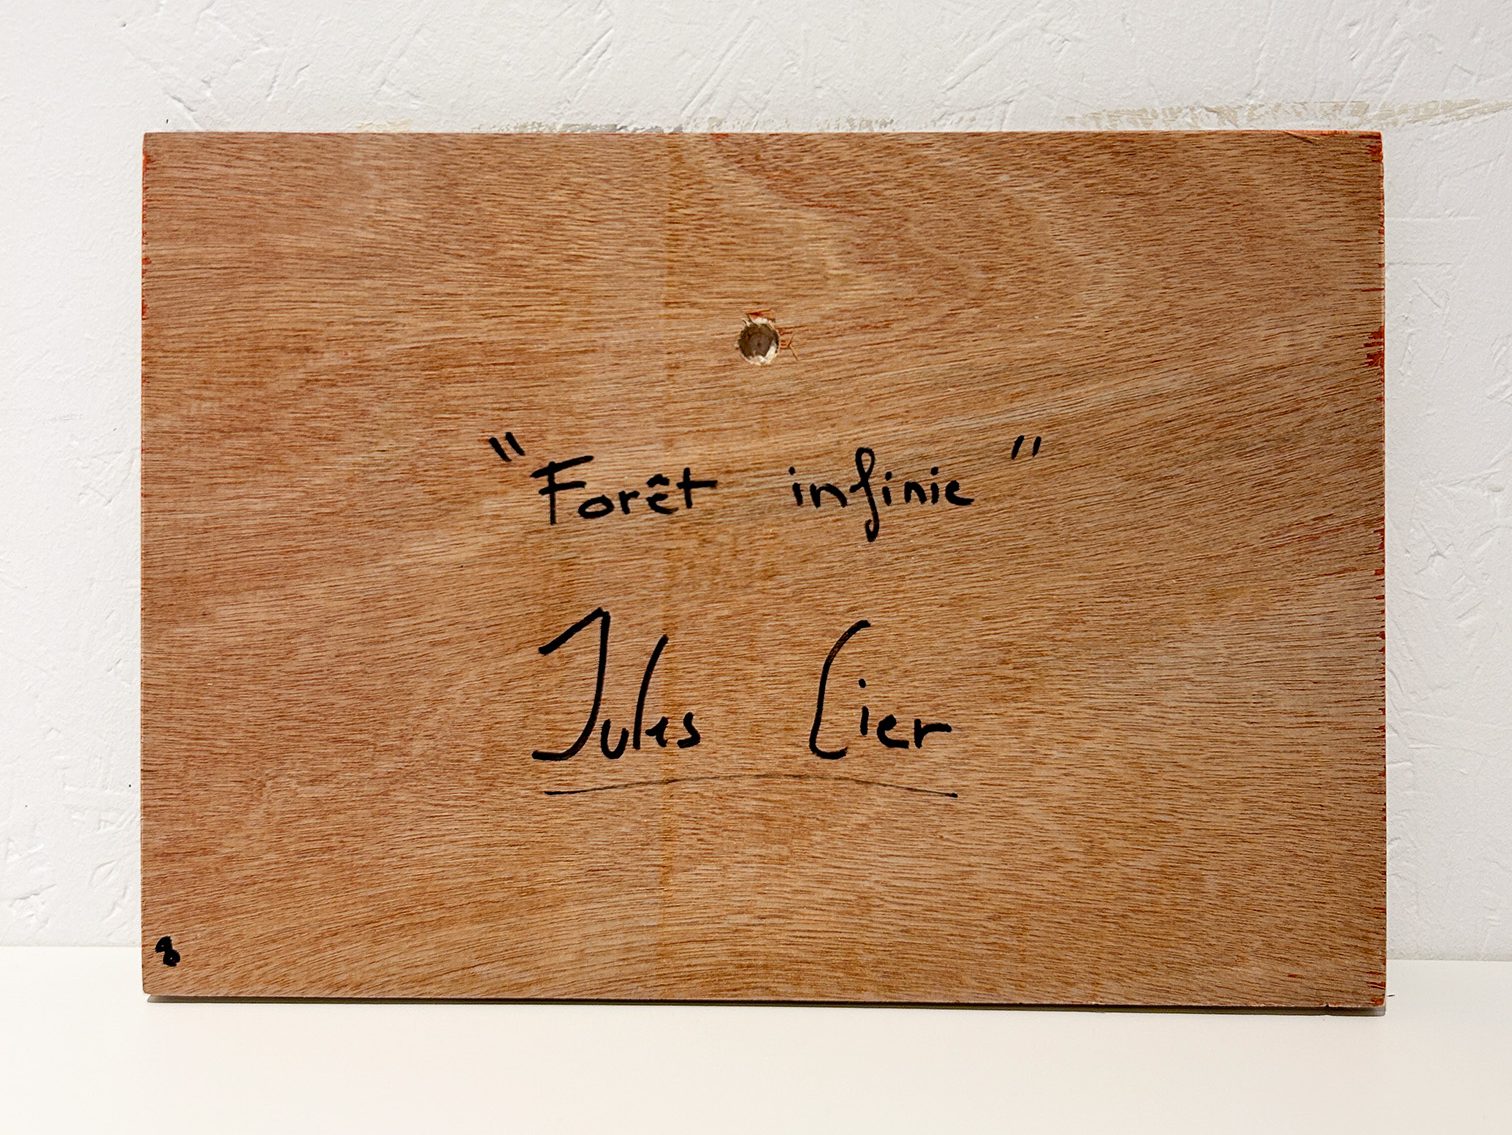 "Forêt infinie"
Jules Lier
8